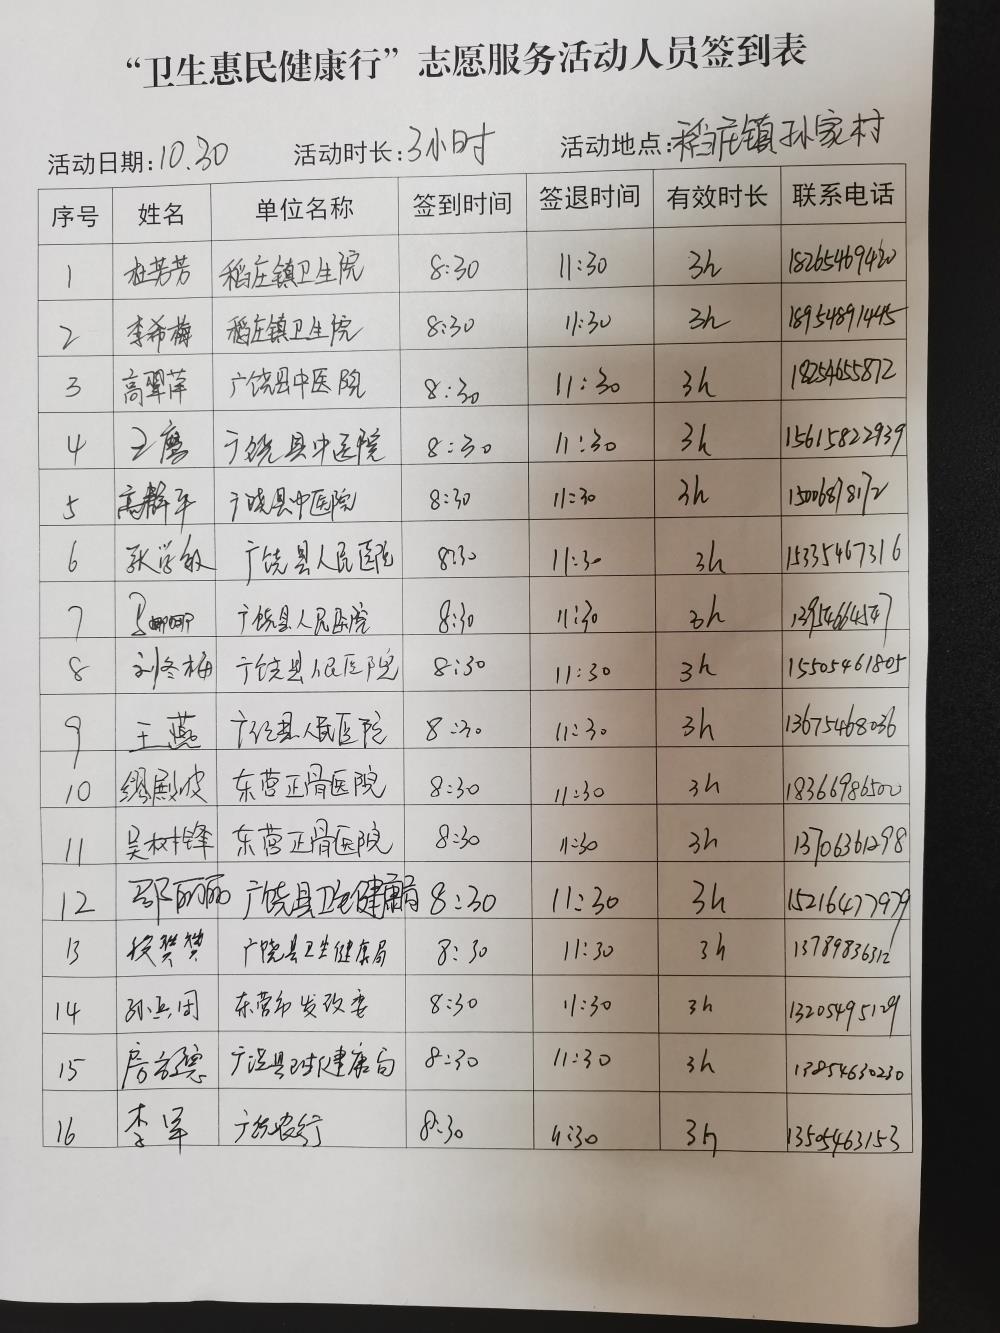 “卫生惠民健康行”志愿服务活动人员签到表
活动日期:10.30 活动时长:3小时 活动地点:稻庄镇孙家村
序号 姓名 单位名称 签到时间 签退时间 有效时长 联系电话
1 杜芳芳 稻庄镇卫生院 8:30 11:30 3h 18265469420
2 李希梅 稻庄镇卫生院 8:30 11:30 3h 18954891445
3 高翠萍 广饶县中医院 8:30 11:30 3h 18254655872
4 王磨 广饶县中医院 8:30 11:30 3h 15615822939
5 高静平 广饶县中医院 8:30 11:30 3h 15006878172
6 耿学敏 广饶县人民医院 8:30 11:30 3h 15335467316
7 广饶县人民医院 8:30 11:30 3h 13954664547
8 刘冬梅 广饶县人民医院 8:30 11:30 3h 15505461805
9 王燕 广饶县人民医院 8:30 11:30 3h 13675468036
10 缪殿波 东营正骨医院 8:30 11:30 3h 18366986500
11 吴树锋 东营正骨医院 8:30 11:30 3h 13706361298
12 邵丽丽 广饶县卫生健康局 8:30 11:30 3h 15216477979
13 广饶县卫生健康局 8:30 11:30 3h 13789836312
14 孙兵团 东营市发改委 8:30 11:30 3h 13205495129
15 房方德 广饶县卫生健康局 8:30 11:30 3h 13854630230
16 李军 广饶农行 8:30 11:30 3h 13505463153